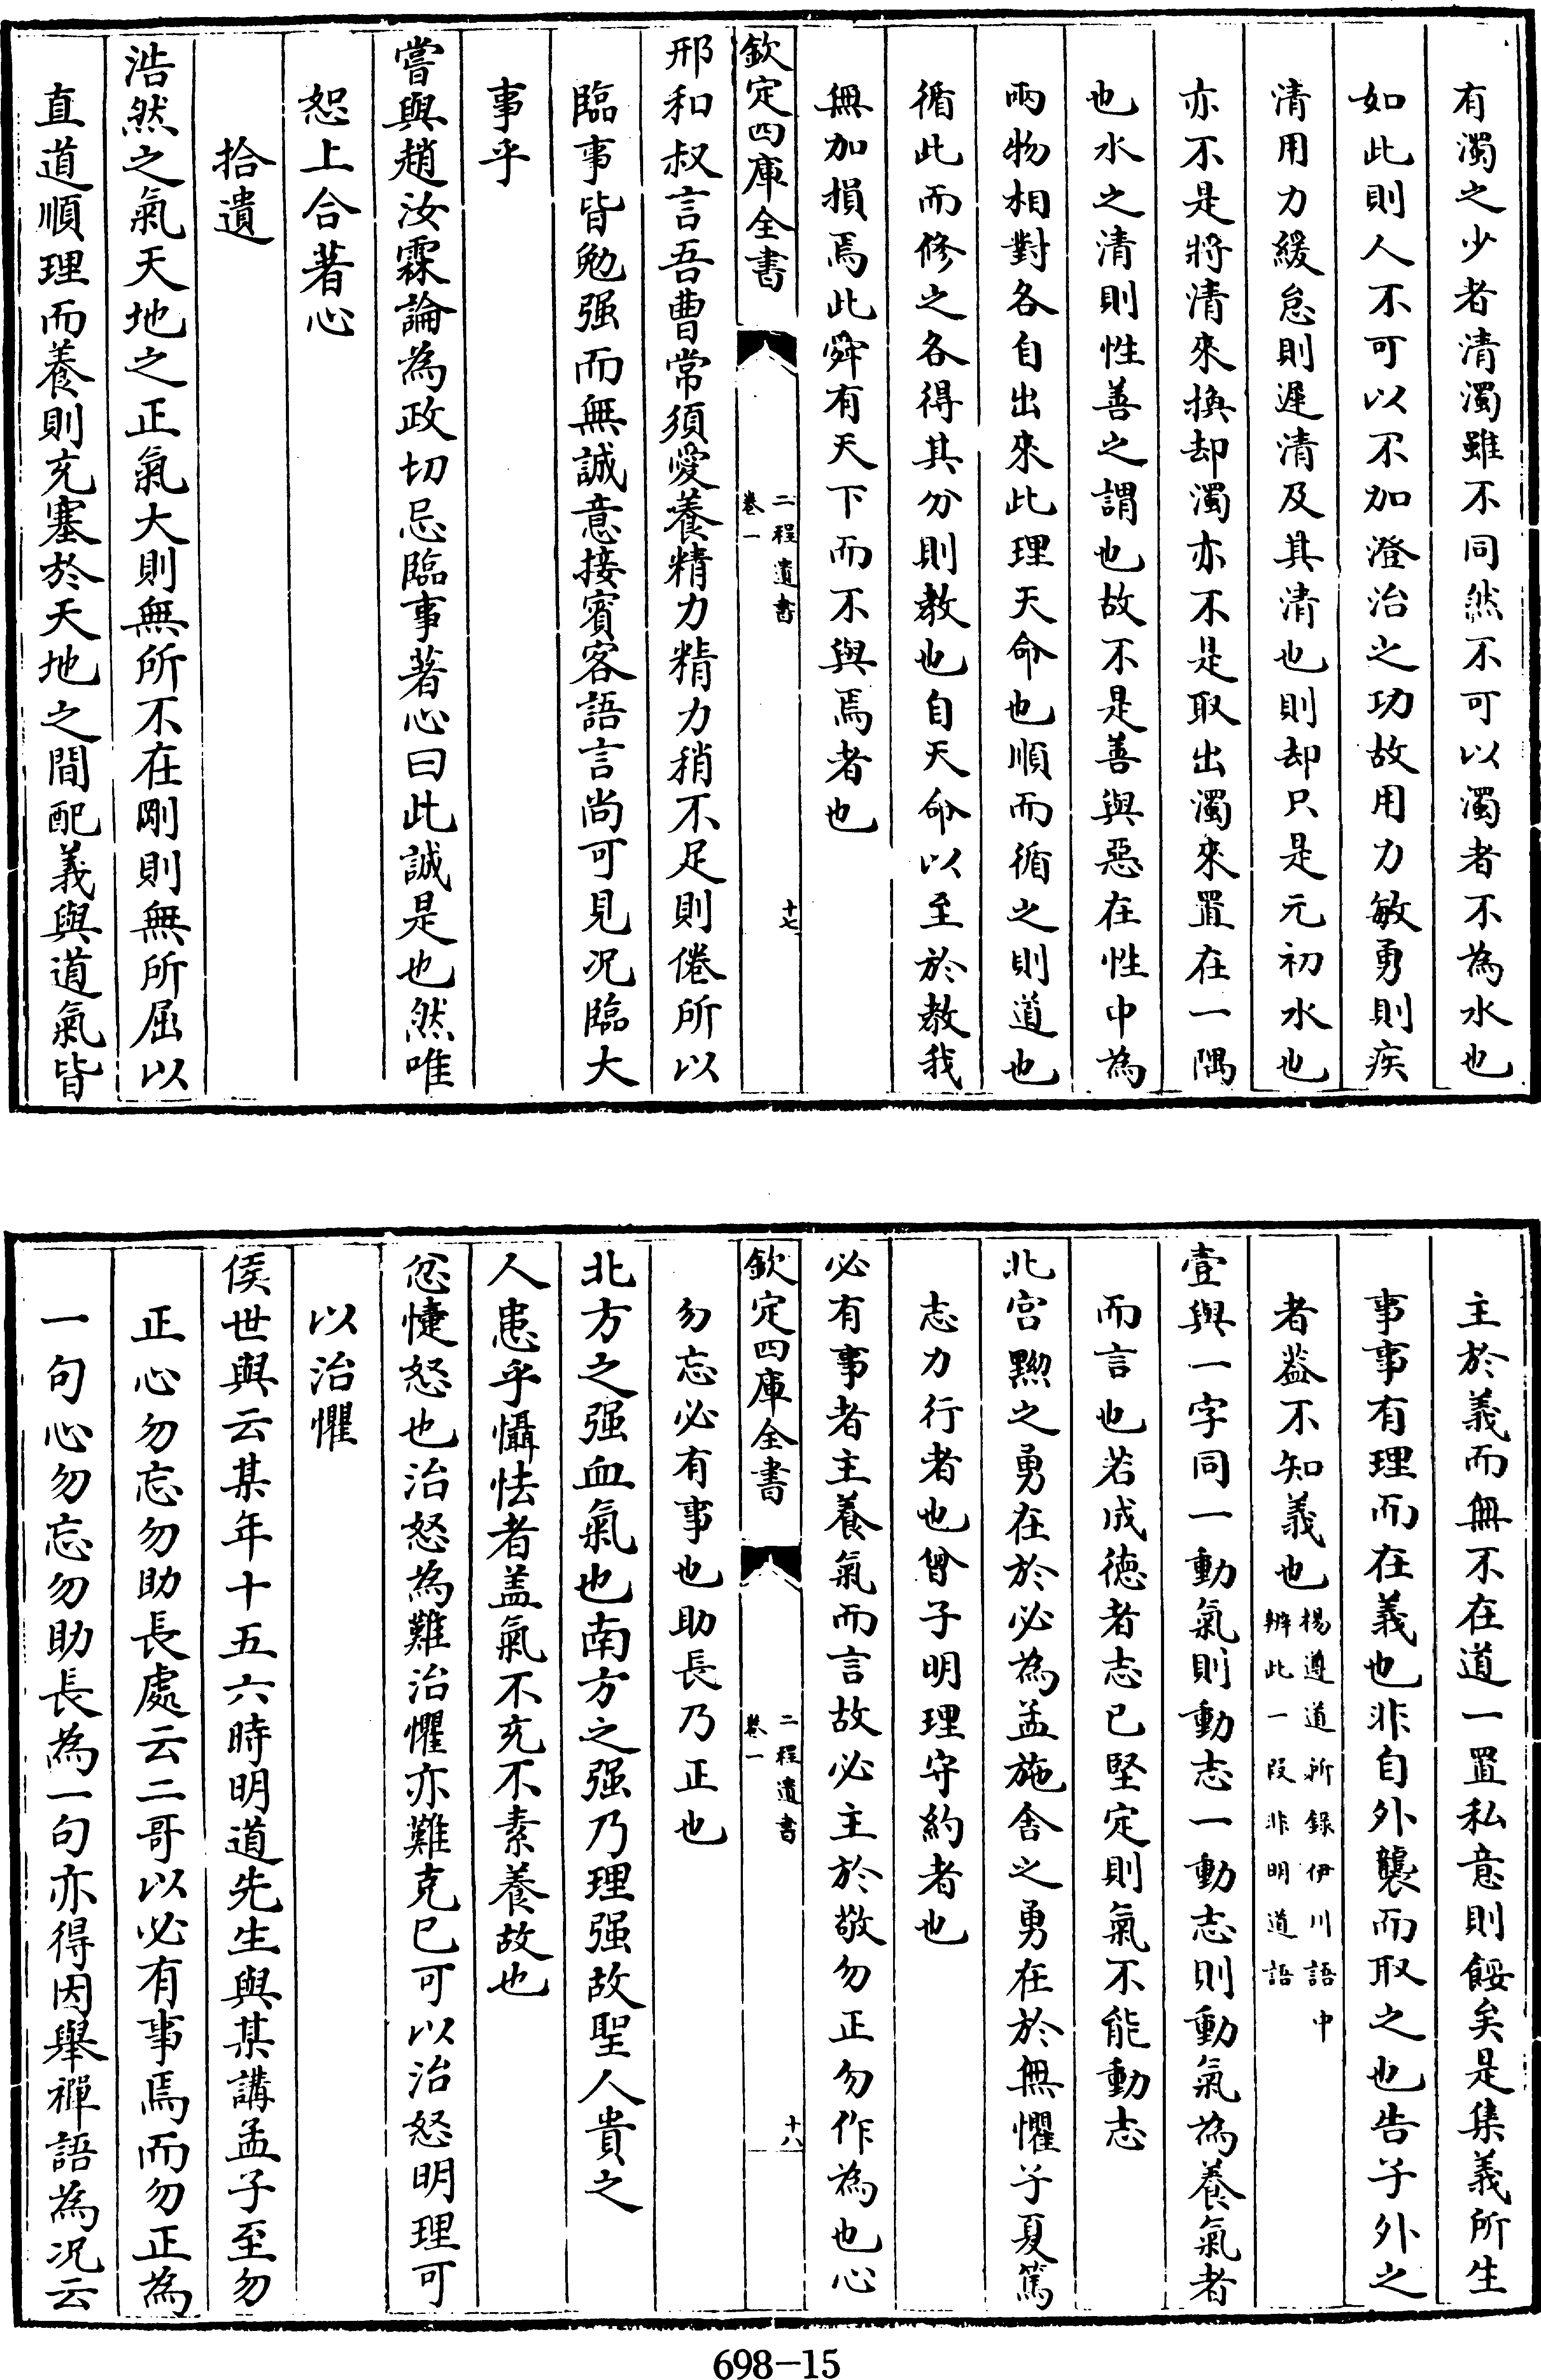 有濁之少者清濁雖不同然不可以濁者不為水也
如此則人不可以不加澄治之功故用力敏勇則疾
清用力緩怠則遲清及其清也則却只是元初水也
亦不是將清來換却濁亦不是取出濁來置在一隅
也水之清則性善之謂也故不是善與惡在性中為
兩物相對各自出來此理天命也順而循之則道也
循此而修之各得其分則教也自天命以至於教我
無加損焉此舜有天下而不與焉者也
欽定四庫全書
二程遺書
卷一
十七
邢和叔言吾曹常須愛養精力精力稍不足則倦所以
臨事皆勉强而無誠意接賓客語言尚可見况臨大
事乎
嘗與趙汝霖論為政切忌臨事著心曰此誠是也然唯
恕上合著心
拾遺
浩然之氣天地之正氣大則無所不在剛則無所屈以
直道順理而養則充塞於天地之間配義與道氣皆
主於義而無不在道一置私意則餒矣是集義所生
事事有理而在義也非自外襲而取之也告子外之
者蓋不知義也楊遵道所錄伊川語中
辨此一段非明道語
壹與一字同一動氣則動志一動志則動氣為養氣者
而言也若成德者志已堅定則氣不能動志
北宫黝之勇在於必為孟施舍之勇在於無懼子夏篤
志力行者也曾子明理守約者也
必有事者主養氣而言故必主於敬勿正勿作為也心
欽定四庫全書
二程遺書
卷一
十八
勿忘必有事也助長乃正也
北方之强血氣也南方之强乃理强故聖人貴之
人患乎懾怯者盖氣不充不素養故也
忿懥怒也治怒為難治懼亦難克已可以治怒明理可
以治懼
侯世與云某年十五六時明道先生與某講孟子至勿
正心勿忘勿助長處云二哥以必有事焉而勿正為
一句心勿忘勿助長為一句亦得因舉禪語為况云
698-15